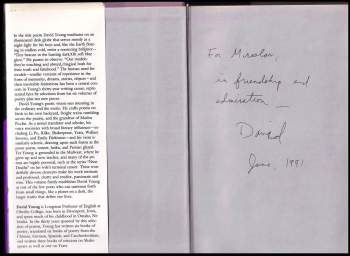 In the title poem David Young meditates on an
illuminated desk globe that serves mostly as a
night light for his boys and, like the Earth float-
ing in endless cold, emits a reassuring
glow." He praises as objects: "Our models
they're touching and absurd, magical both for
their truth and falsehood." The human need for
models—smaller versions of experience in the
form of memories, dreams, stories, objects—and
their inevitable limitations has been a central con-
cern in Young's thirty-year writing career, repre-
sented here by selections from his six volumes of
poetry plus ten new poems.
David Young's poetic vision sees meaning in
the ordinary and the exotic. He crafts poems set
both in his own backyard,
across the pasture, and the grandeur of Machu
Picchu. As a noted translator and scholar, his
voice resonates with broad literary influence—in-
cluding Li Po, Rilke, Shakespeare, Yeats, Wallace
Stevens, and Emily Dickinson—and his verse is
similarly eclectic, drawing upon such forms as the
prose poem, sonnet, haiku, and Persian ghazal.
Yet Young is grounded in the Midwest, where he
grew up and now teaches, and many of the po-
ems are highly personal, such as the cycle "Nine
Deaths" on his wife's terminal cancer. These won-
derfully diverse elements make his work intimate
and profound, charming and erudite, passionate and
wise. This volume firmly establishes David Young
as one of the few poets who can summon forth
from small things, like a planet on a desk, the
larger truths that define our lives.
David Young is Longman Professor of English at
Oberlin College, was born in Davenport, Iowa,
and spent much of his childhood in Omaha, Ne-
braska. In the thirty years spanned by this selec-
tion of poems, Young has written six books of
poetry, translated six books of poetry from the
Chinese, German, Spanish, and Czechoslovakian,
and written three books of criticism on Shake-
speare as well as one on Yeats.
For Miroslav,
in friendship and
admiration —
David
June, 1991